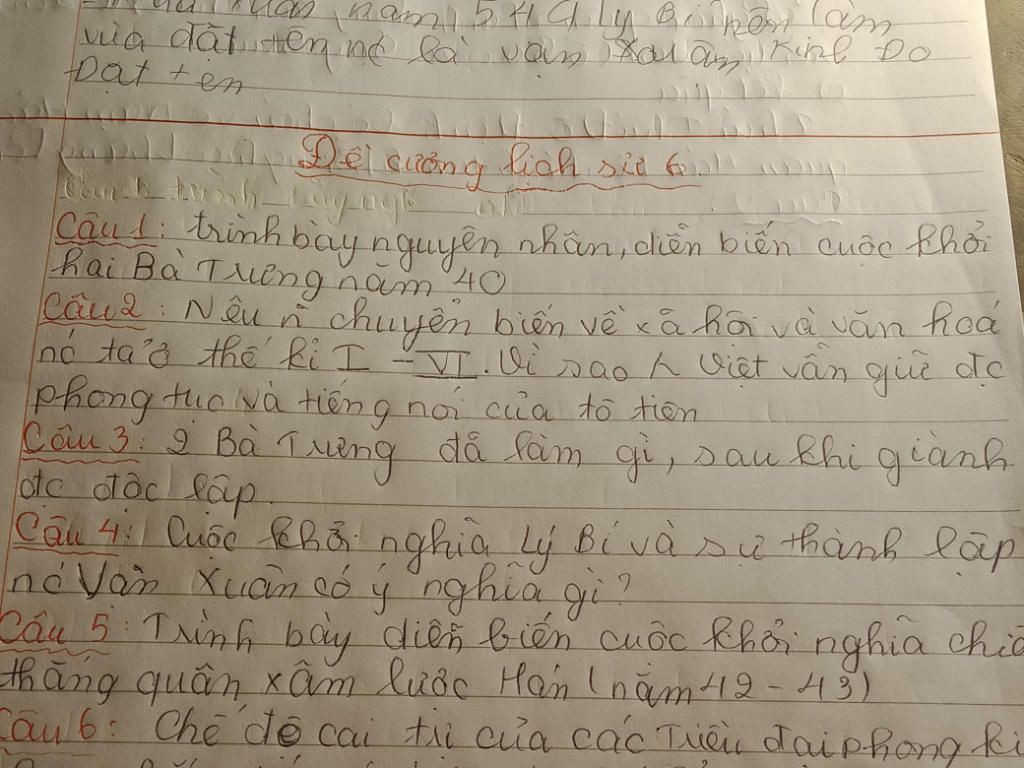 xuân năm 544 Lý Bí nên làm
vua đặt tên nc là vạn xuân Kinh Đo
Đạt tên
Đề cương lịch sử 6
Câu 1: trình bày nguyên nhân, diễn biến cuộc khởi
hai Bà Trưng năm 40
Câu 2: Nêu n~ chuyển biến về xã hội và văn hoá
nc ta ở thế kỉ I - VI. Vì sao n Việt vẫn giữ đc
phong tục và tiếng nói của tổ tiên
Câu 3: 2 Bà Trưng đã làm gì, sau khi giành
đc độc lập
Câu 4: Cuộc khởi nghĩa Lý Bí và sự thành lập
nc Vạn Xuân có ý nghĩa gì?
Câu 5: Trình bày diễn biến cuộc khởi nghĩa chiế
thắng quân xâm lược Hán (năm 42 - 43)
Câu 6: Chế độ cai trị của các Triều đại phong ki